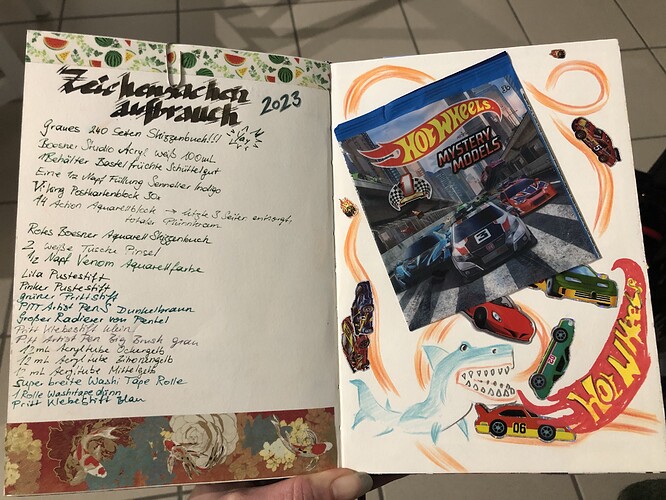 Zeichensachen
aufbrauch 2023
graues 240 Seiten Skizzenbuch!!!
Boesner Studio Acryl weiß 100mL
1 Behälter Bastelfrüchte Schüttelgut
Eine 1/2 Napf Füllung Sennelier Indigo
Viking Postkartenblock 30x
A4 Action Aquarellblock → letzte 3 Seiten entsorgt,
totaler Pfurrkram
Rotes Boesner Aquarell Skizzenbuch
2 weiße Tusche Pinsel
1/2 Napf Venom Aquarellfarbe
Lila Pustestift
Pinker Pustestift
grüner Pritt Stift
PITT Artist Pen S Dunkelbraun
Großer Radierer von Pentel
Pritt Klebestift klein
Pitt Artist Pen Big Brush grau
12mL Acryltube Ockergelb
12mL Acryltube Zitronengelb
12mL Acryltube Mittelgelb
Super breite Washi Tape Rolle
1 Rolle Washitape dünn
Pritt Klebestift Blau
HOT WHEELS
MYSTERY
MODELS
1
3
06
HOT WHEELS